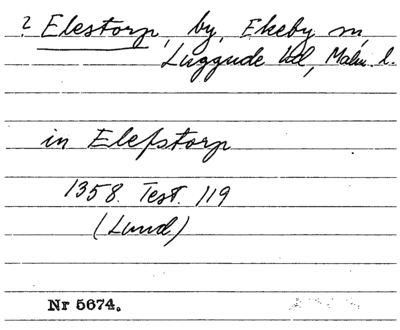 ? Elestorp, by, Ekeby sn,
Luggude hd, Malm. l.
in Elefstorp
1358. Test. 119
(Lund)
Nr 5674.